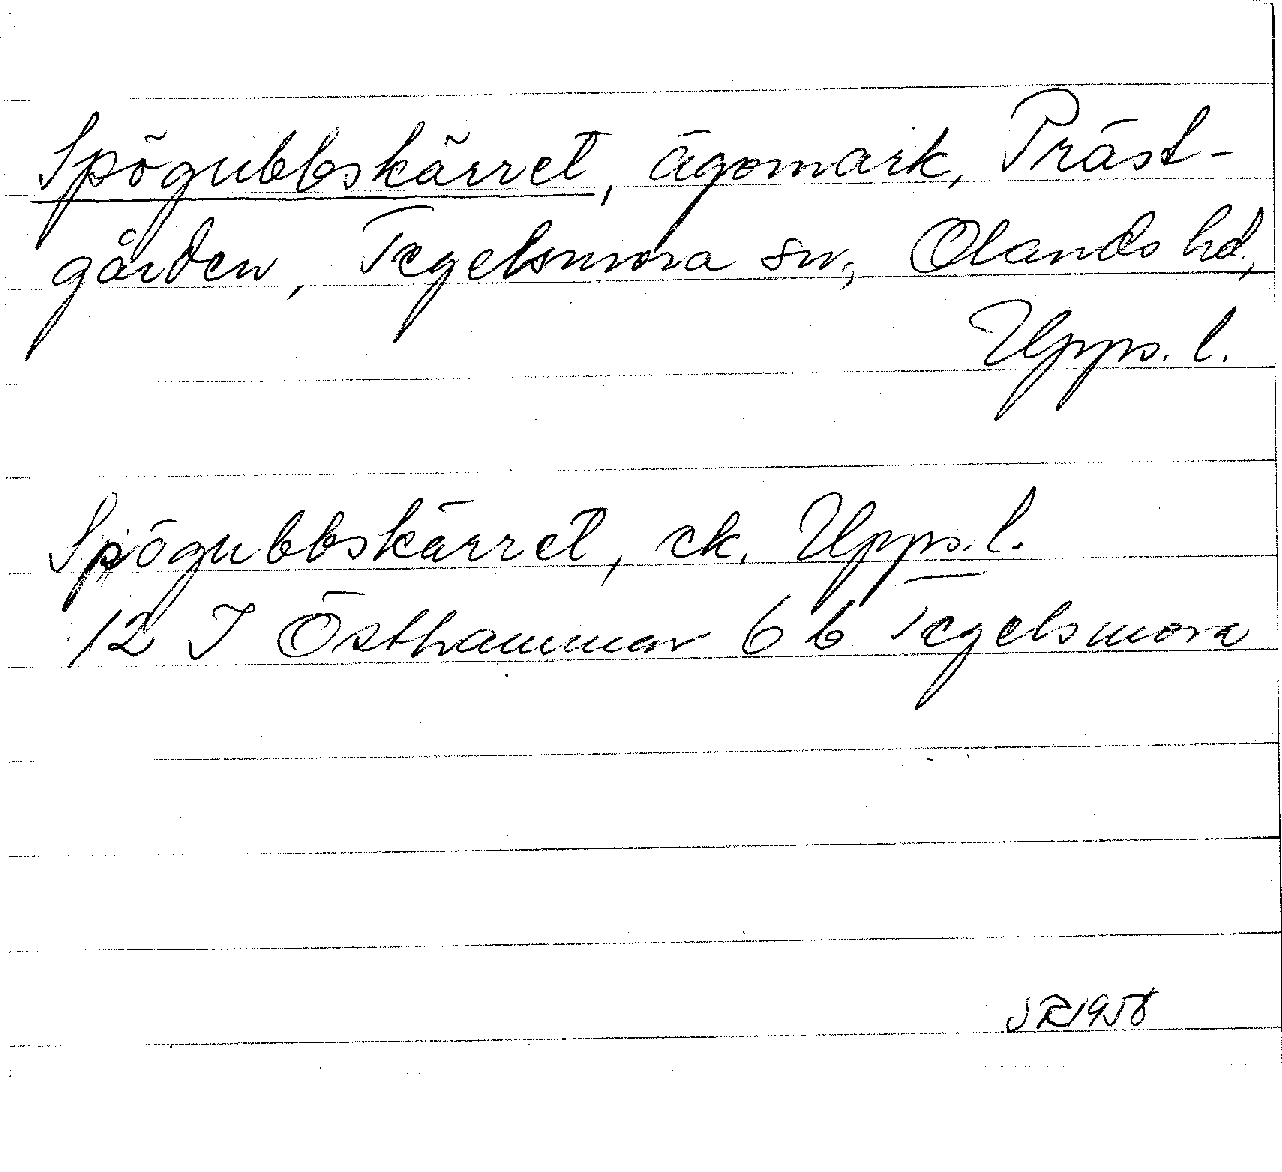 Spögubbskärret, ägomark, Präst-
gården, Tegelsmora sn, Olands hd,
Upps. l.
Spögubbskärret, ek. Upps. l.
12 I Östhammar 6 b Tegelsmora
JR 1958